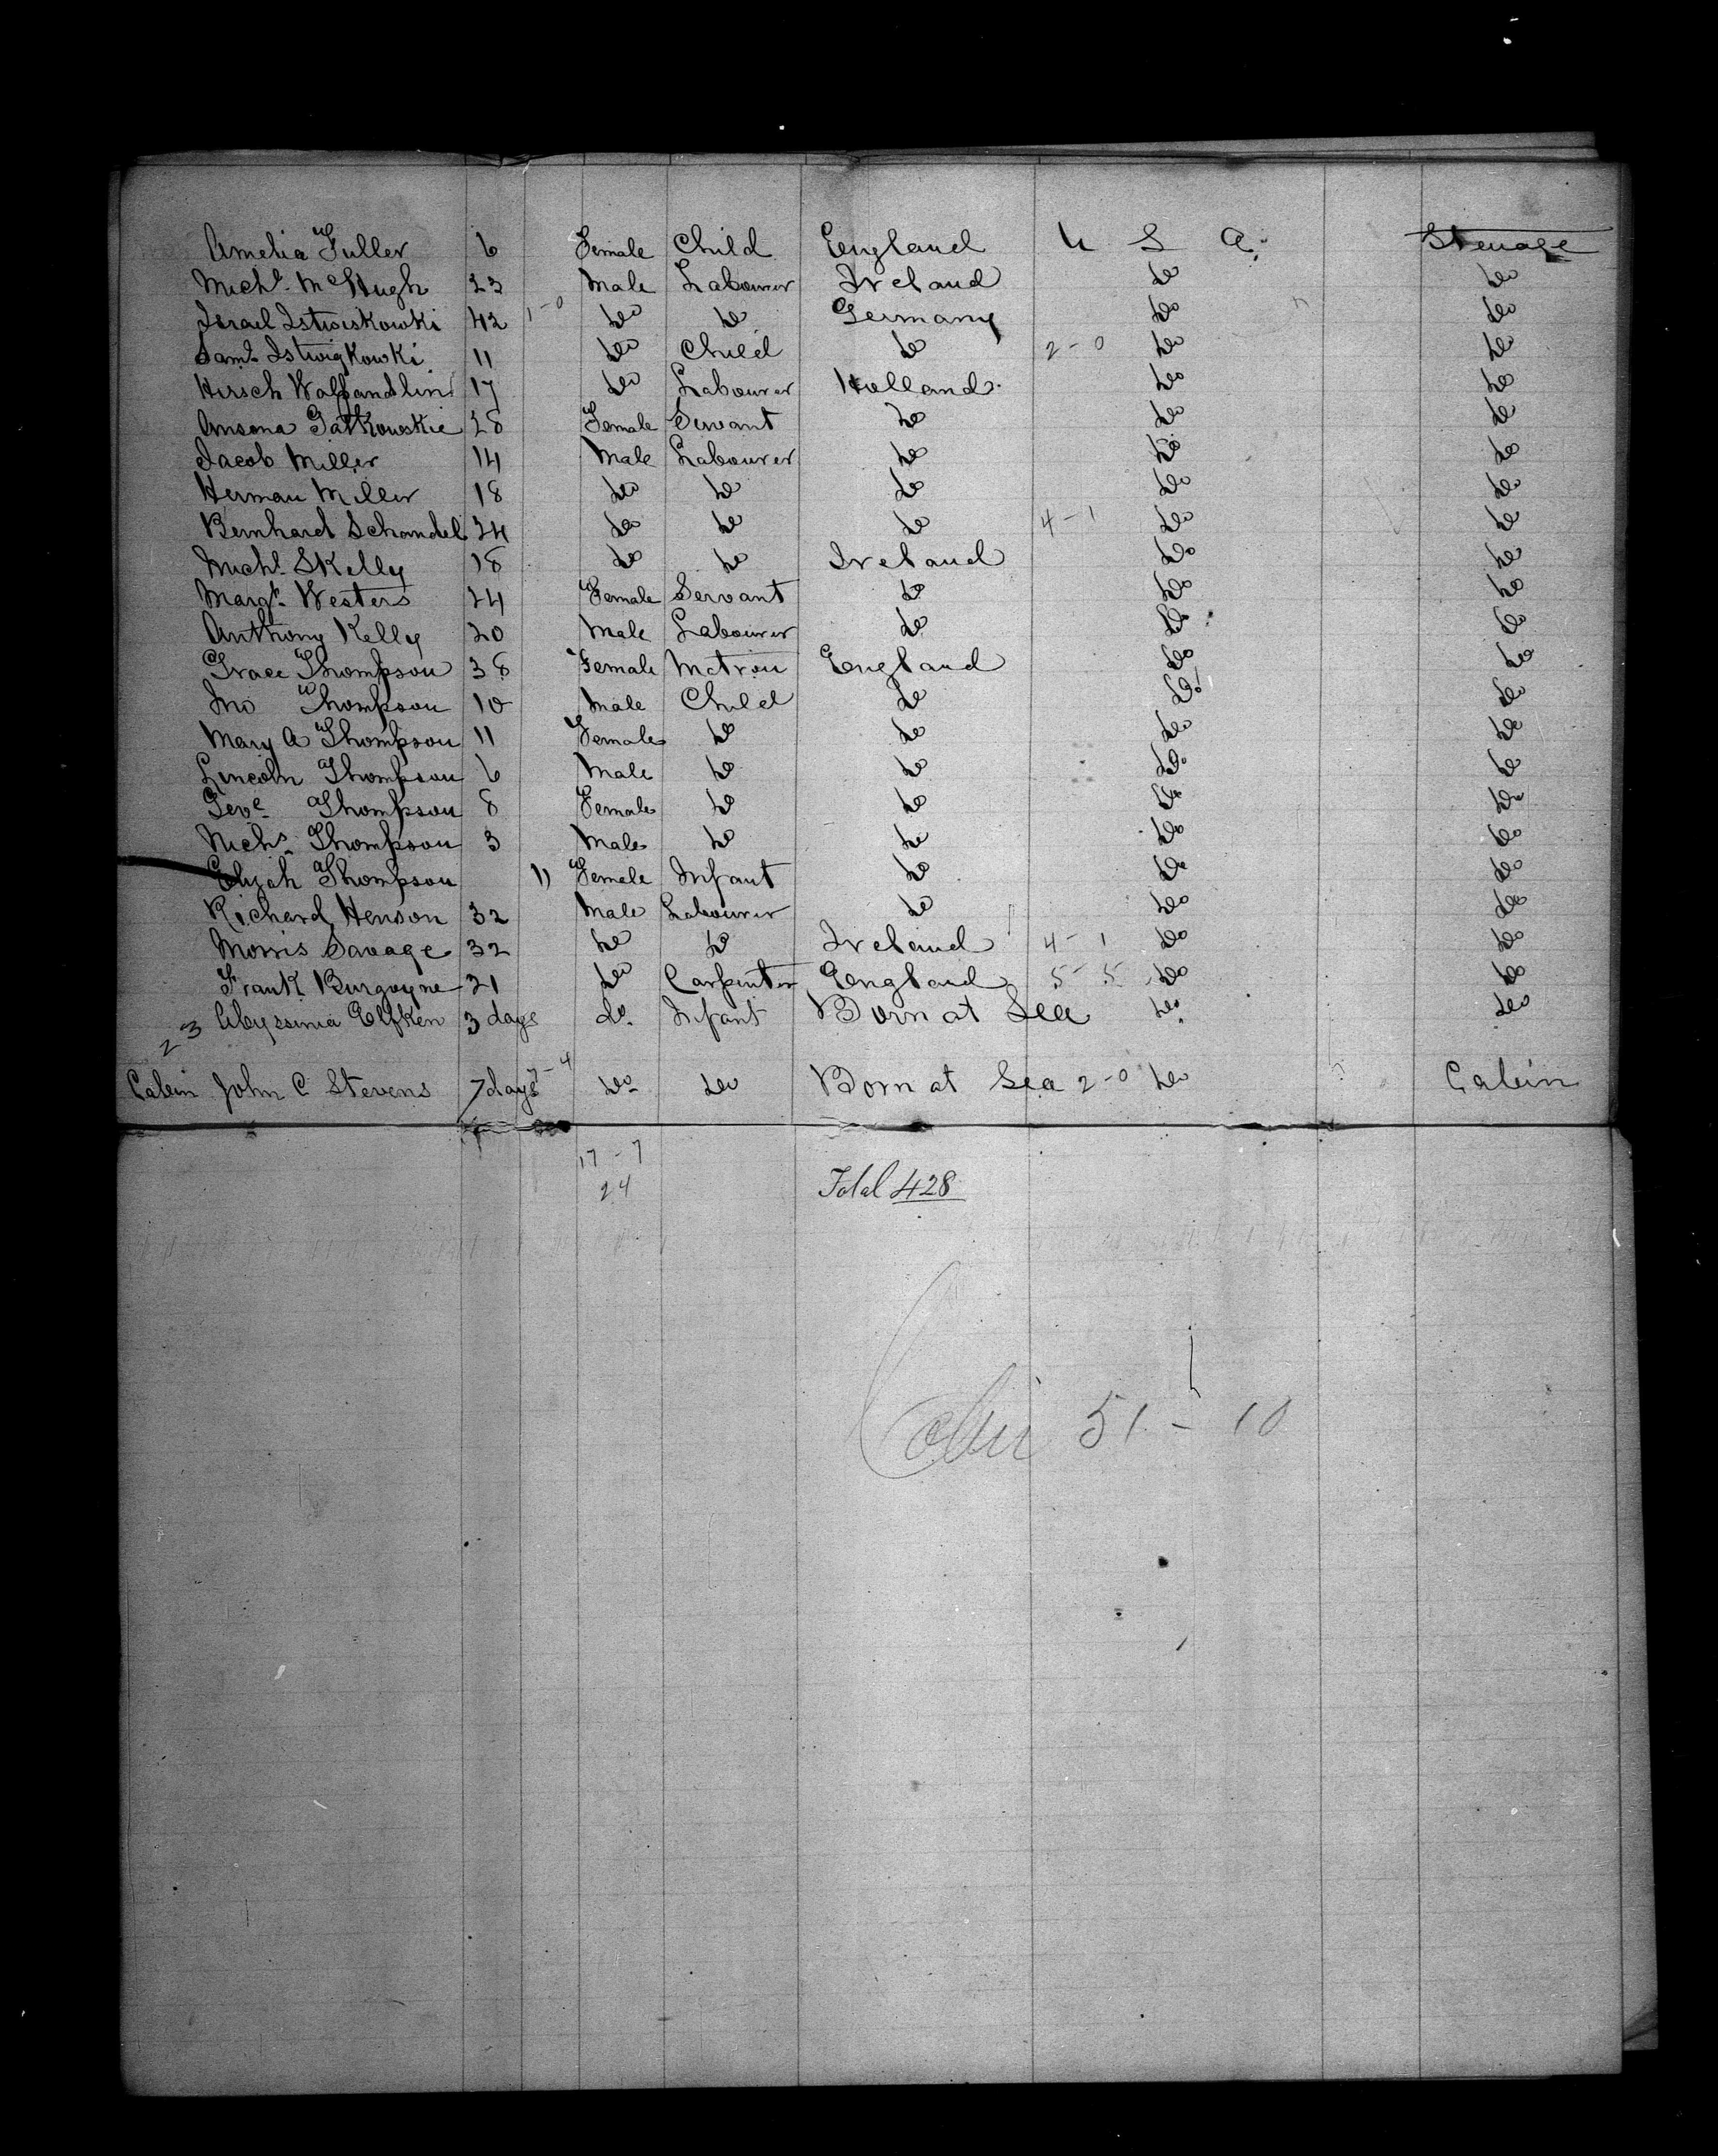 Amelia Fuller 6 Female Child England U S A. Steerage
Michl. McHugh 23 Male Labourer Ireland Do Do
Israel Istwiskowki 42 1-0 Do Do Germany Do Do
Saml. Istwigkowki 11 Do Child Do 2-0 Do Do
Hirsch 17 Do Labourer Holland Do Do
28 Female Servant Do Do Do
Jacob Miller 14 Male Labourer Do Do Do
Herman Miller 18 Do Do Do Do Do
Bernhard Schandel 24 Do Do Do 4-1 Do Do
Michl. Skelly 18 Do Do Ireland Do Do
Margt. Westers 24 Female Servant Do Do Do
Anthony Kelly 20 Male Labourer Do Do Do
Grace Thompson 38 Female Matron England Do Do
Jno Thompson 10 Male Child Do Do Do
Mary A Thompson 11 Female Do Do Do Do
Lincoln Thompson 6 Male Do Do Do Do
Geve Thompson 8 Female Do Do Do Do
Nichs. Thompson 3 Male Do Do Do Do
Elizah Thompson 11 Female Infant Do Do Do
Richard Henson 32 Male Labourer Do Do Do
Morris Savage 32 Do Do Ireland 4-1 Do Do
Frank Burgoyne 21 Do Carpenter England 5-5 Do Do
23 Abyssinia Elfken 3 days do. Infant Born at Sea Do Do
Cabin John C Stevens 7 days Do Do Born at Sea 2-0 Do Cabin
17-7
24 Total 428
51-10